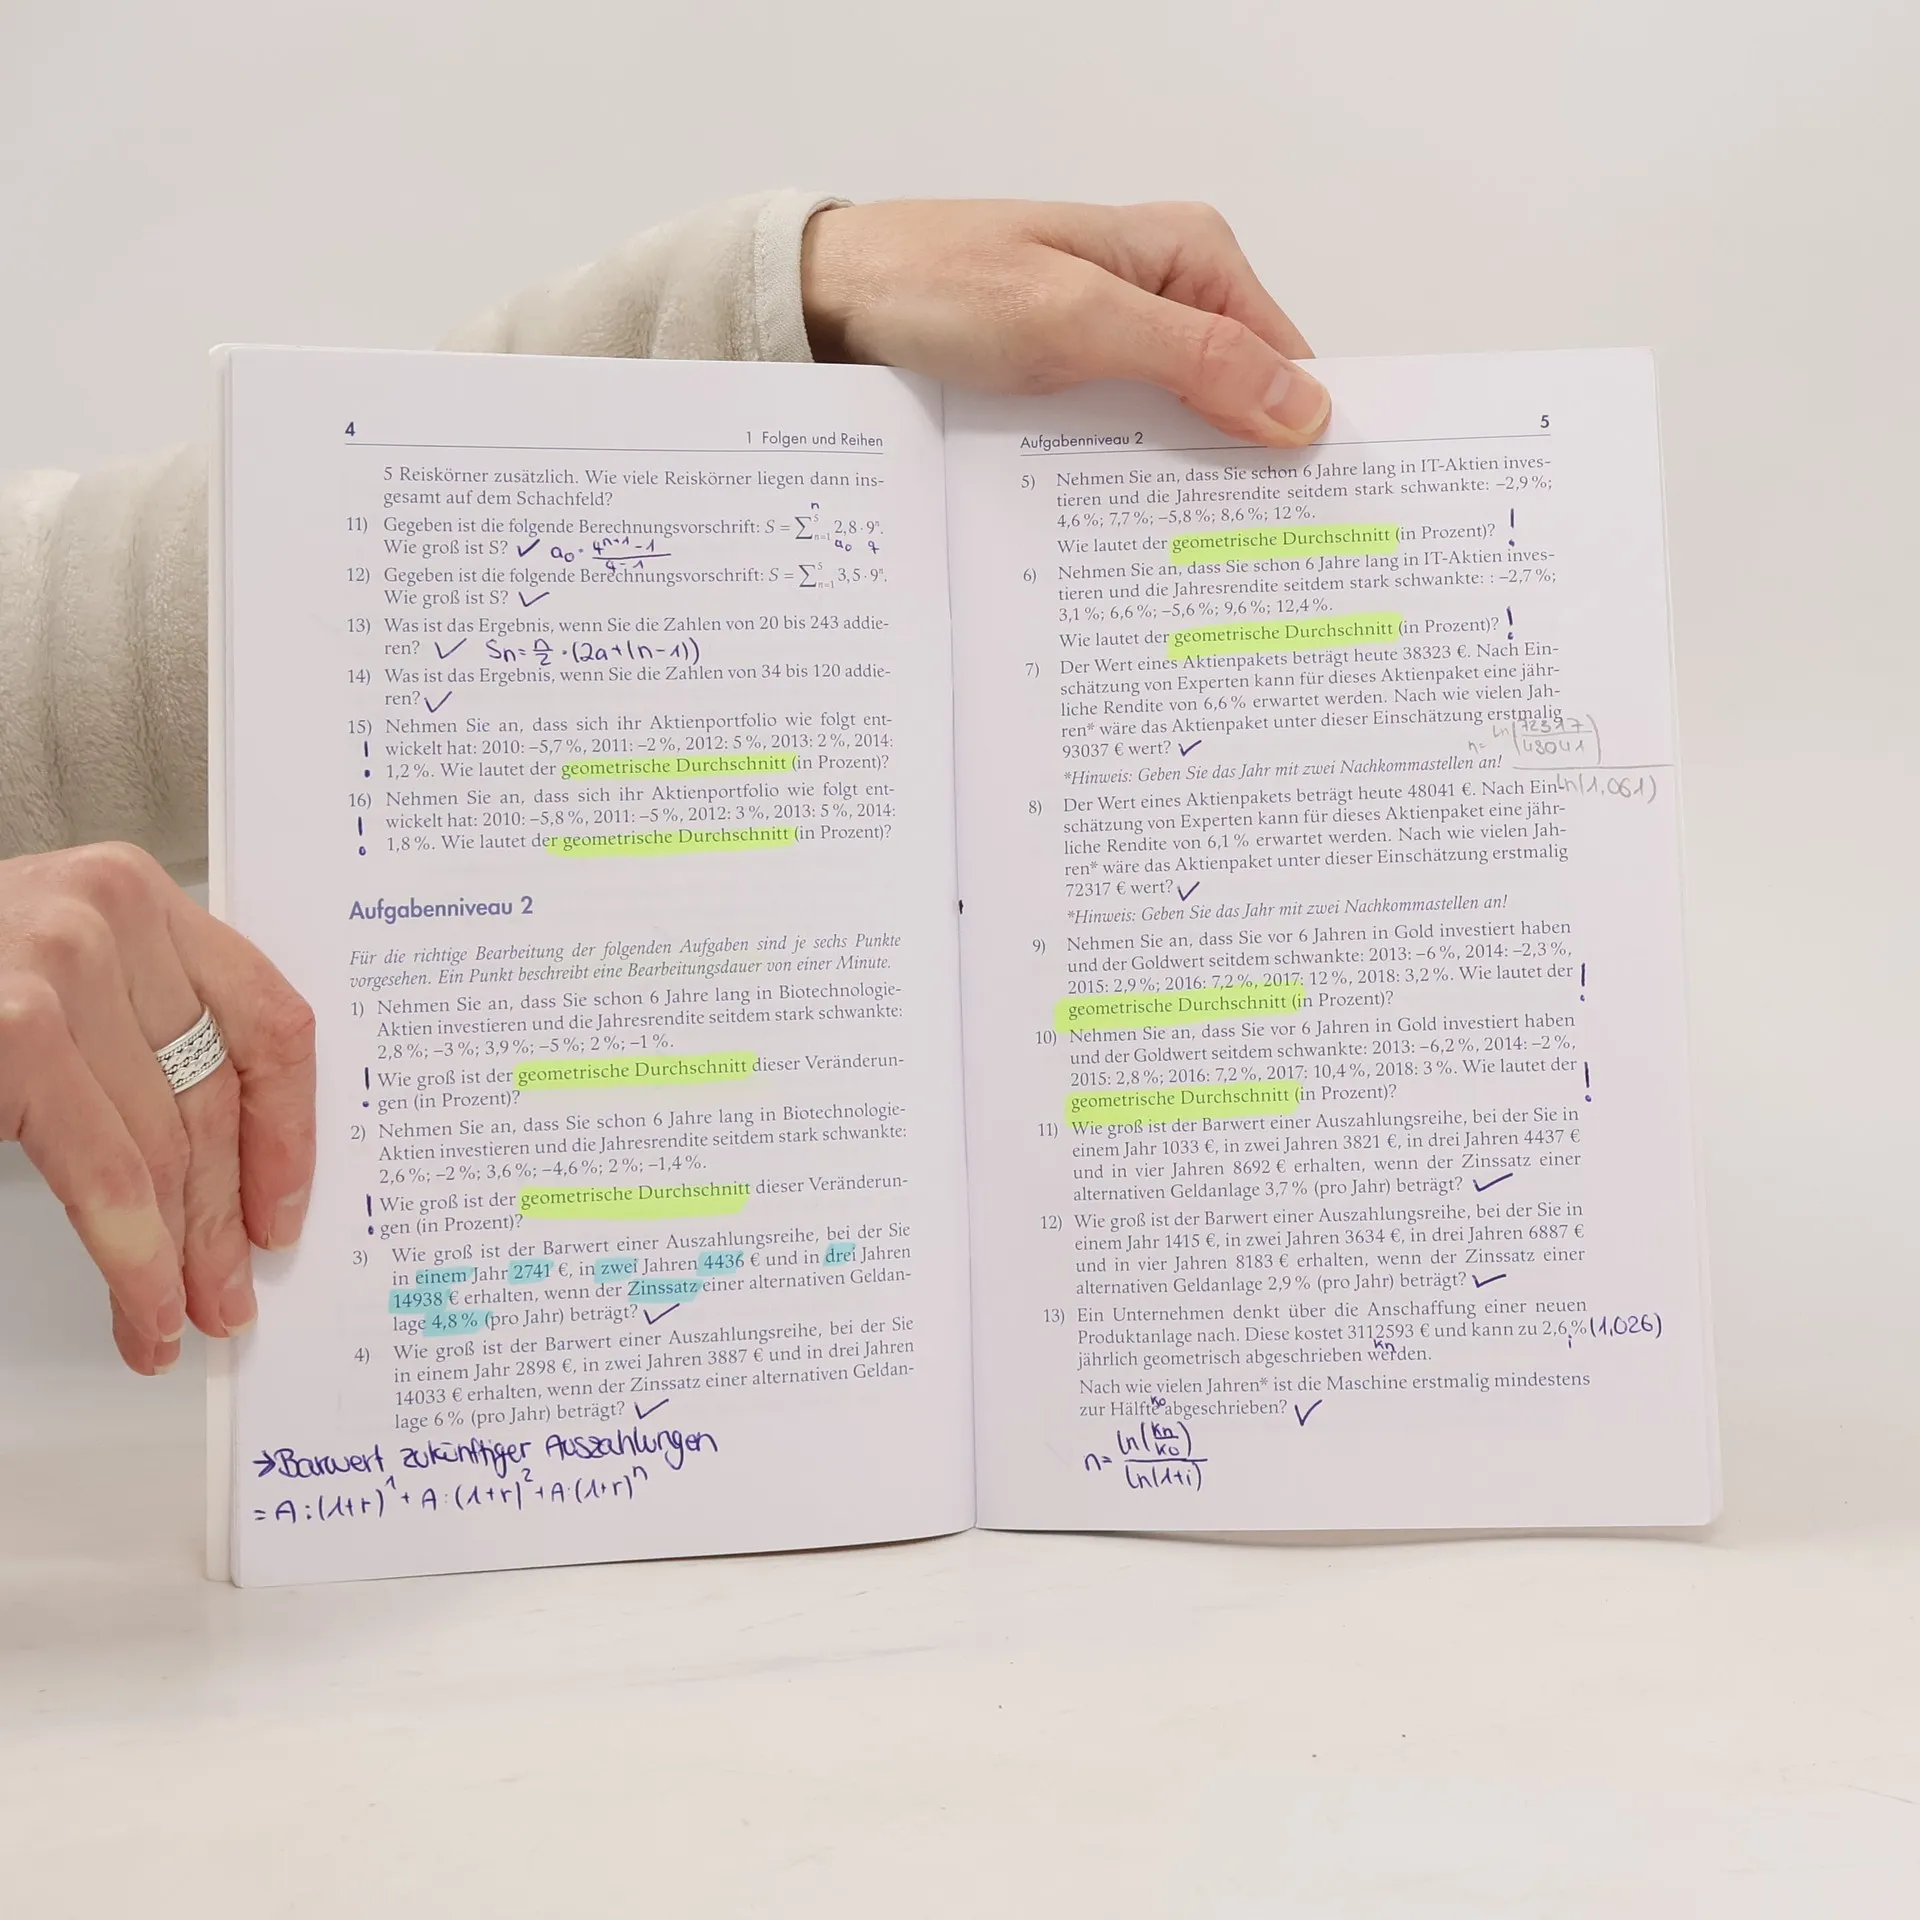 4
1 Folgen und Reihen
5 Reiskörner zusätzlich. Wie viele Reiskörner liegen dann ins-
gesamt auf dem Schachfeld?
n
11) Gegeben ist die folgende Berechnungsvorschrift: S = ∑⁵ₙ₌₁ 2,8 · 9ⁿ.
a₀ q
Wie groß ist S? ✓ a₀ · (qⁿ⁺¹ - 1) / (q - 1)
12) Gegeben ist die folgende Berechnungsvorschrift: S = ∑⁵ₙ₌₁ 3,5 · 9ⁿ.
Wie groß ist S? ✓
13) Was ist das Ergebnis, wenn Sie die Zahlen von 20 bis 243 addie-
ren? ✓ Sn = n/2 · (2a+(n-1))
14) Was ist das Ergebnis, wenn Sie die Zahlen von 34 bis 120 addie-
ren? ✓
15) Nehmen Sie an, dass sich ihr Aktienportfolio wie folgt ent-
! wickelt hat: 2010: –5,7 %, 2011: –2 %, 2012: 5 %, 2013: 2 %, 2014:
1,2 %. Wie lautet der geometrische Durchschnitt (in Prozent)?
16) Nehmen Sie an, dass sich ihr Aktienportfolio wie folgt ent-
! wickelt hat: 2010: –5,8 %, 2011: –5 %, 2012: 3 %, 2013: 5 %, 2014:
1,8 %. Wie lautet der geometrische Durchschnitt (in Prozent)?
Aufgabenniveau 2
Für die richtige Bearbeitung der folgenden Aufgaben sind je sechs Punkte
vorgesehen. Ein Punkt beschreibt eine Bearbeitungsdauer von einer Minute.
1) Nehmen Sie an, dass Sie schon 6 Jahre lang in Biotechnologie-
Aktien investieren und die Jahresrendite seitdem stark schwankte:
2,8 %; –3 %; 3,9 %; –5 %; 2 %; –1 %.
! Wie groß ist der geometrische Durchschnitt dieser Veränderun-
gen (in Prozent)?
2) Nehmen Sie an, dass Sie schon 6 Jahre lang in Biotechnologie-
Aktien investieren und die Jahresrendite seitdem stark schwankte:
2,6 %; –2 %; 3,6 %; –4,6 %; 2 %; –1,4 %.
! Wie groß ist der geometrische Durchschnitt dieser Veränderun-
gen (in Prozent)?
3) Wie groß ist der Barwert einer Auszahlungsreihe, bei der Sie
in einem Jahr 2741 €, in zwei Jahren 4436 € und in drei Jahren
14938 € erhalten, wenn der Zinssatz einer alternativen Geldan-
lage 4,8 % (pro Jahr) beträgt? ✓
4) Wie groß ist der Barwert einer Auszahlungsreihe, bei der Sie
in einem Jahr 2898 €, in zwei Jahren 3887 € und in drei Jahren
14033 € erhalten, wenn der Zinssatz einer alternativen Geldan-
lage 6 % (pro Jahr) beträgt? ✓
→ Barwert zukünftiger Auszahlungen
= A : (1+r)¹ + A : (1+r)² + A : (1+r)ⁿ
Aufgabenniveau 2
5
5) Nehmen Sie an, dass Sie schon 6 Jahre lang in IT-Aktien inves-
tieren und die Jahresrendite seitdem stark schwankte: –2,9 %;
4,6 %; 7,7 %; –5,8 %; 8,6 %; 12 %.
Wie lautet der geometrische Durchschnitt (in Prozent)? !
6) Nehmen Sie an, dass Sie schon 6 Jahre lang in IT-Aktien inves-
tieren und die Jahresrendite seitdem stark schwankte: : –2,7 %;
3,1 %; 6,6 %; –5,6 %; 9,6 %; 12,4 %.
Wie lautet der geometrische Durchschnitt (in Prozent)? !
7) Der Wert eines Aktienpakets beträgt heute 38323 €. Nach Ein-
schätzung von Experten kann für dieses Aktienpaket eine jähr-
liche Rendite von 6,6 % erwartet werden. Nach wie vielen Jah-
ren* wäre das Aktienpaket unter dieser Einschätzung erstmalig
93037 € wert? ✓
n = ln(72317/48041) / ln(1,061)
*Hinweis: Geben Sie das Jahr mit zwei Nachkommastellen an!
8) Der Wert eines Aktienpakets beträgt heute 48041 €. Nach Ein-
schätzung von Experten kann für dieses Aktienpaket eine jähr-
liche Rendite von 6,1 % erwartet werden. Nach wie vielen Jah-
ren* wäre das Aktienpaket unter dieser Einschätzung erstmalig
72317 € wert? ✓
*Hinweis: Geben Sie das Jahr mit zwei Nachkommastellen an!
9) Nehmen Sie an, dass Sie vor 6 Jahren in Gold investiert haben
und der Goldwert seitdem schwankte: 2013: –6 %, 2014: –2,3 %,
2015: 2,9 %; 2016: 7,2 %, 2017: 12 %, 2018: 3,2 %. Wie lautet der !
geometrische Durchschnitt (in Prozent)?
10) Nehmen Sie an, dass Sie vor 6 Jahren in Gold investiert haben
und der Goldwert seitdem schwankte: 2013: –6,2 %, 2014: –2 %,
2015: 2,8 %; 2016: 7,2 %, 2017: 10,4 %, 2018: 3 %. Wie lautet der !
geometrische Durchschnitt (in Prozent)?
11) Wie groß ist der Barwert einer Auszahlungsreihe, bei der Sie in
einem Jahr 1033 €, in zwei Jahren 3821 €, in drei Jahren 4437 €
und in vier Jahren 8692 € erhalten, wenn der Zinssatz einer
alternativen Geldanlage 3,7 % (pro Jahr) beträgt? ✓
12) Wie groß ist der Barwert einer Auszahlungsreihe, bei der Sie in
einem Jahr 1415 €, in zwei Jahren 3634 €, in drei Jahren 6887 €
und in vier Jahren 8183 € erhalten, wenn der Zinssatz einer
alternativen Geldanlage 2,9 % (pro Jahr) beträgt? ✓
13) Ein Unternehmen denkt über die Anschaffung einer neuen
Produktanlage nach. Diese kostet 3112593 € und kann zu 2,6 % (1,026)
Kn i
jährlich geometrisch abgeschrieben werden.
Nach wie vielen Jahren* ist die Maschine erstmalig mindestens
K0
zur Hälfte abgeschrieben? ✓
n = ln(Kn/K0) / ln(1+i)